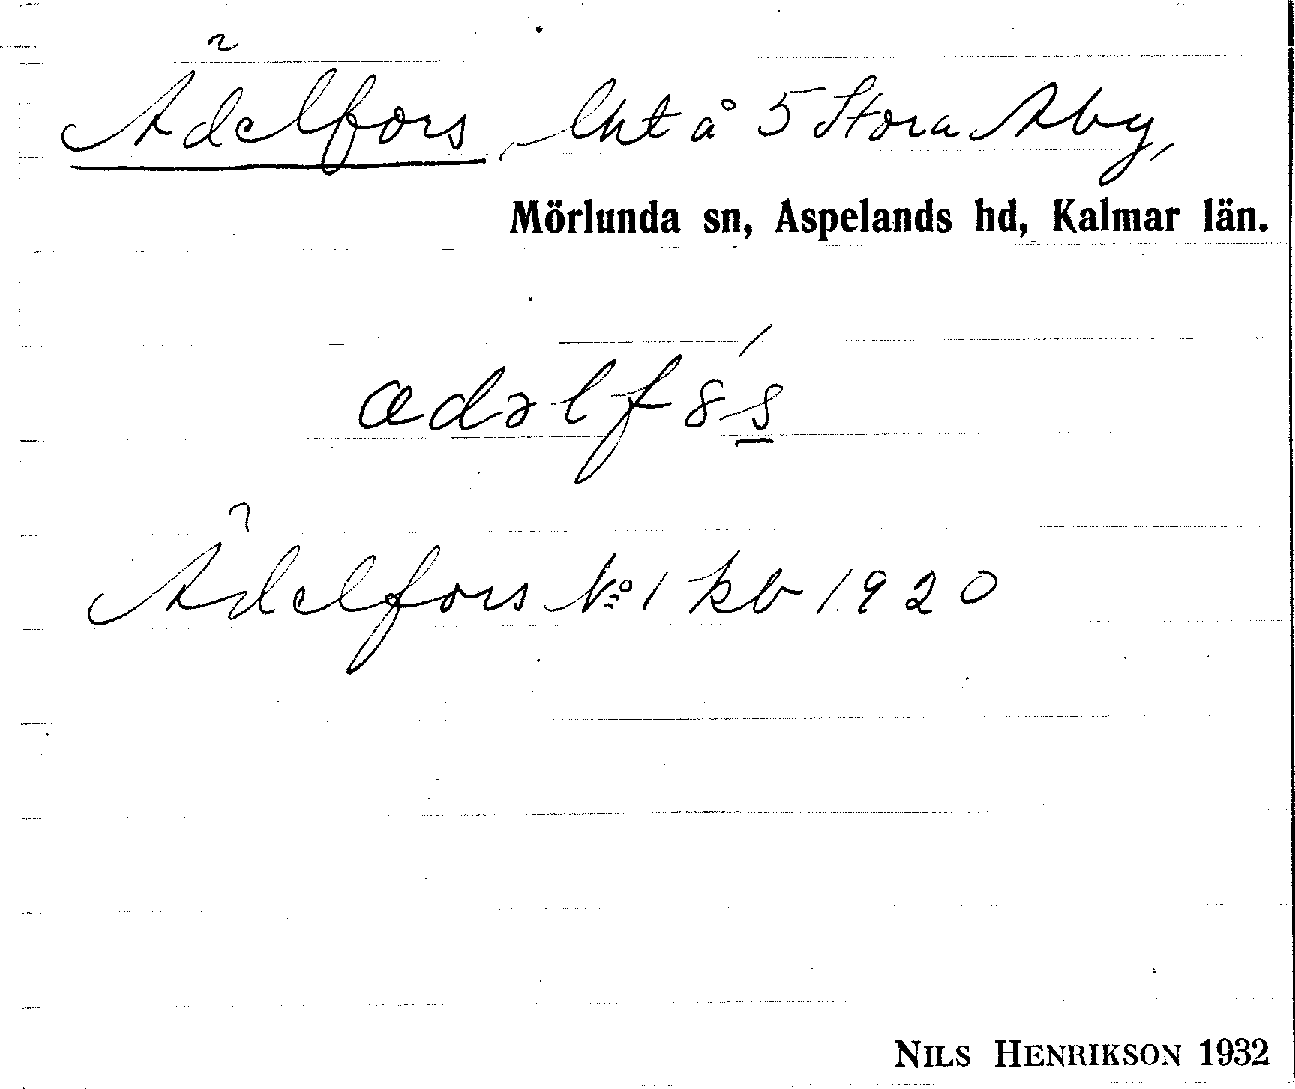 Ädelfors, lht å 5 Stora Aby,
Mörlunda sn, Aspelands hd, Kalmar län.
ædəlfs
Ädelfors No 1 kb 1920
NILS HENRIKSON 1932